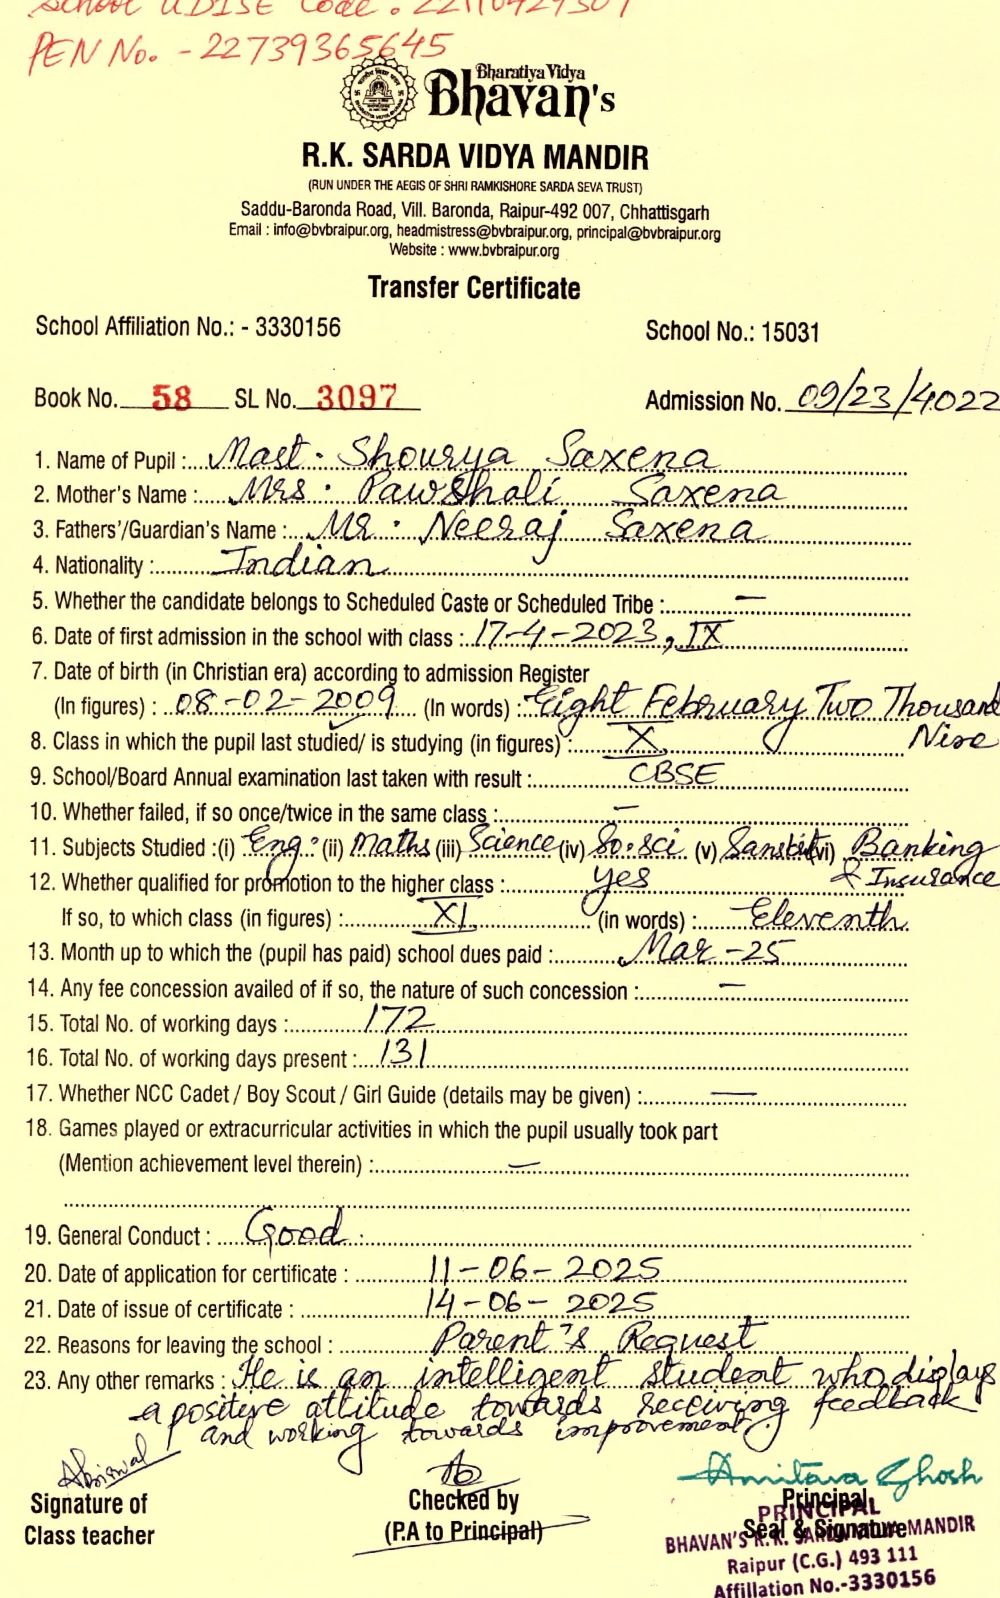 School UDISE Code : 22110429507
PEN No. - 22739365645
Bharatiya Vidya
Bhavan's
R.K. SARDA VIDYA MANDIR
(RUN UNDER THE AEGIS OF SHRI RAMKISHORE SARDA SEVA TRUST)
Saddu-Baronda Road, Vill. Baronda, Raipur-492 007, Chhattisgarh
Email : info@bvbraipur.org, headmistress@bvbraipur.org, principal@bvbraipur.org
Website : www.bvbraipur.org
Transfer Certificate
School Affiliation No.: - 3330156 School No.: 15031
Book No. 58 SL No. 3097 Admission No. 09/23/4022
1. Name of Pupil : Mast. Shourya Saxena
2. Mother's Name : Mrs. Pawshali Saxena
3. Fathers'/Guardian's Name : Mr. Neeraj Saxena
4. Nationality : Indian
5. Whether the candidate belongs to Scheduled Caste or Scheduled Tribe : —
6. Date of first admission in the school with class : 17-4-2023, IX
7. Date of birth (in Christian era) according to admission Register
(In figures) : 08-02-2009 (In words) : Eight February Two Thousand
Nine
8. Class in which the pupil last studied/ is studying (in figures) : X
9. School/Board Annual examination last taken with result : CBSE
10. Whether failed, if so once/twice in the same class : —
11. Subjects Studied :(i) Eng. (ii) Maths (iii) Science (iv) So.sci (v) Sanskrit (vi) Banking
& Insurance
12. Whether qualified for promotion to the higher class : yes
If so, to which class (in figures) : XI (in words) : Eleventh
13. Month up to which the (pupil has paid) school dues paid : Mar-25
14. Any fee concession availed of if so, the nature of such concession : —
15. Total No. of working days : 172
16. Total No. of working days present : 131
17. Whether NCC Cadet / Boy Scout / Girl Guide (details may be given) : —
18. Games played or extracurricular activities in which the pupil usually took part
(Mention achievement level therein) : —
19. General Conduct : Good
20. Date of application for certificate : 11-06-2025
21. Date of issue of certificate : 14-06-2025
22. Reasons for leaving the school : Parent's Request
23. Any other remarks : He is an intelligent student who displays
a positive attitude towards receiving feedback
and working towards improvement.
Amitava Ghosh
Signature of Checked by Principal
Class teacher (P.A to Principal) Seal & Signature
PRINCIPAL
BHAVAN'S R.K. SARDA VIDYA MANDIR
Raipur (C.G.) 493 111
Affillation No.-3330156